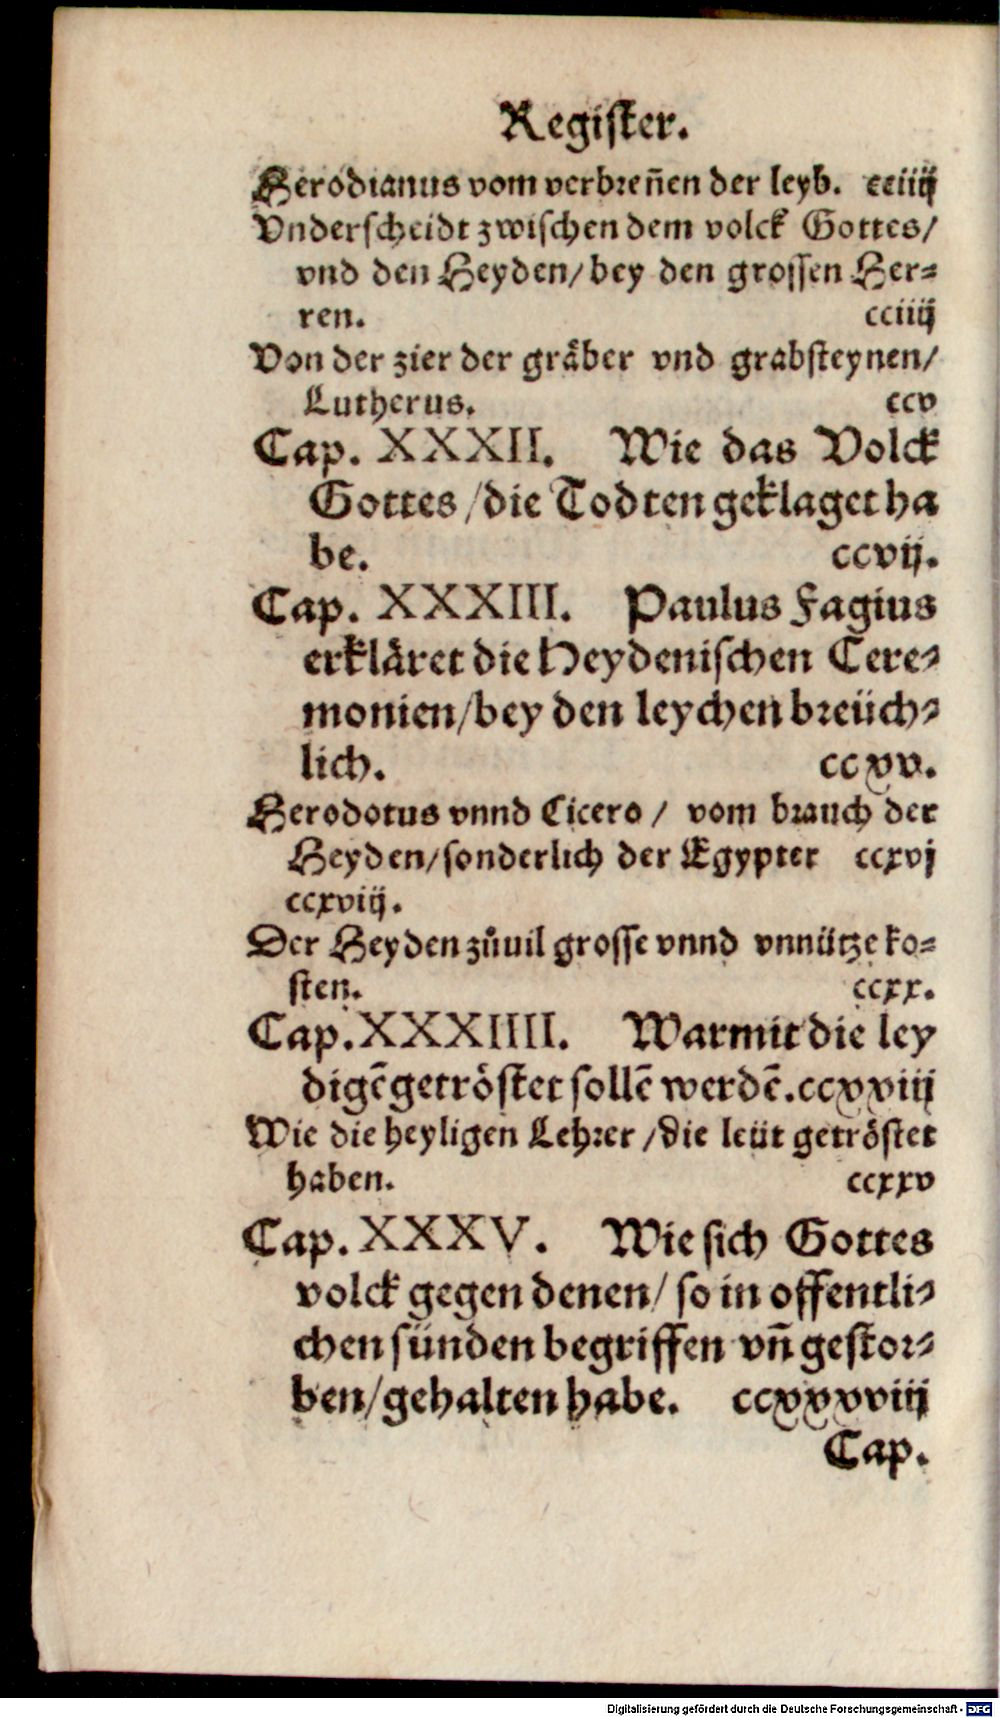 Register.
Herodianus vom verbreñen der leyb. cciiij
Vnderscheidt zwischen dem volck Gottes/
vnd den Heyden/bey den grossen Her=
ren. cciiij
Von der zier der gräber vnd grabsteynen/
Lutherus. ccv
Cap. XXXII. Wie das Volck
Gottes/die Todten geklaget ha
be. ccvij.
Cap. XXXIII. Paulus Fagius
erkläret die Heydenischen Cere=
monien/bey den leychen breüch=
lich. ccxv.
Herodotus vnnd Cicero/ vom brauch der
Heyden/sonderlich der Egypter ccxvj
ccxviij.
Der Heyden zůuil grosse vnnd vnnütze ko=
sten. ccxx.
Cap. XXXIIII. Warmit die ley
digē getröstet sollē werdē. ccxxiij
Wie die heyligen Lehrer/die leüt getröstet
haben. ccxxv
Cap. XXXV. Wie sich Gottes
volck gegen denen/ so in offentli=
chen sünden begriffen vñ gestor=
ben/gehalten habe. ccxxxviij
Cap.
Digitalisierung gefördert durch die Deutsche Forschungsgemeinschaft - DFG